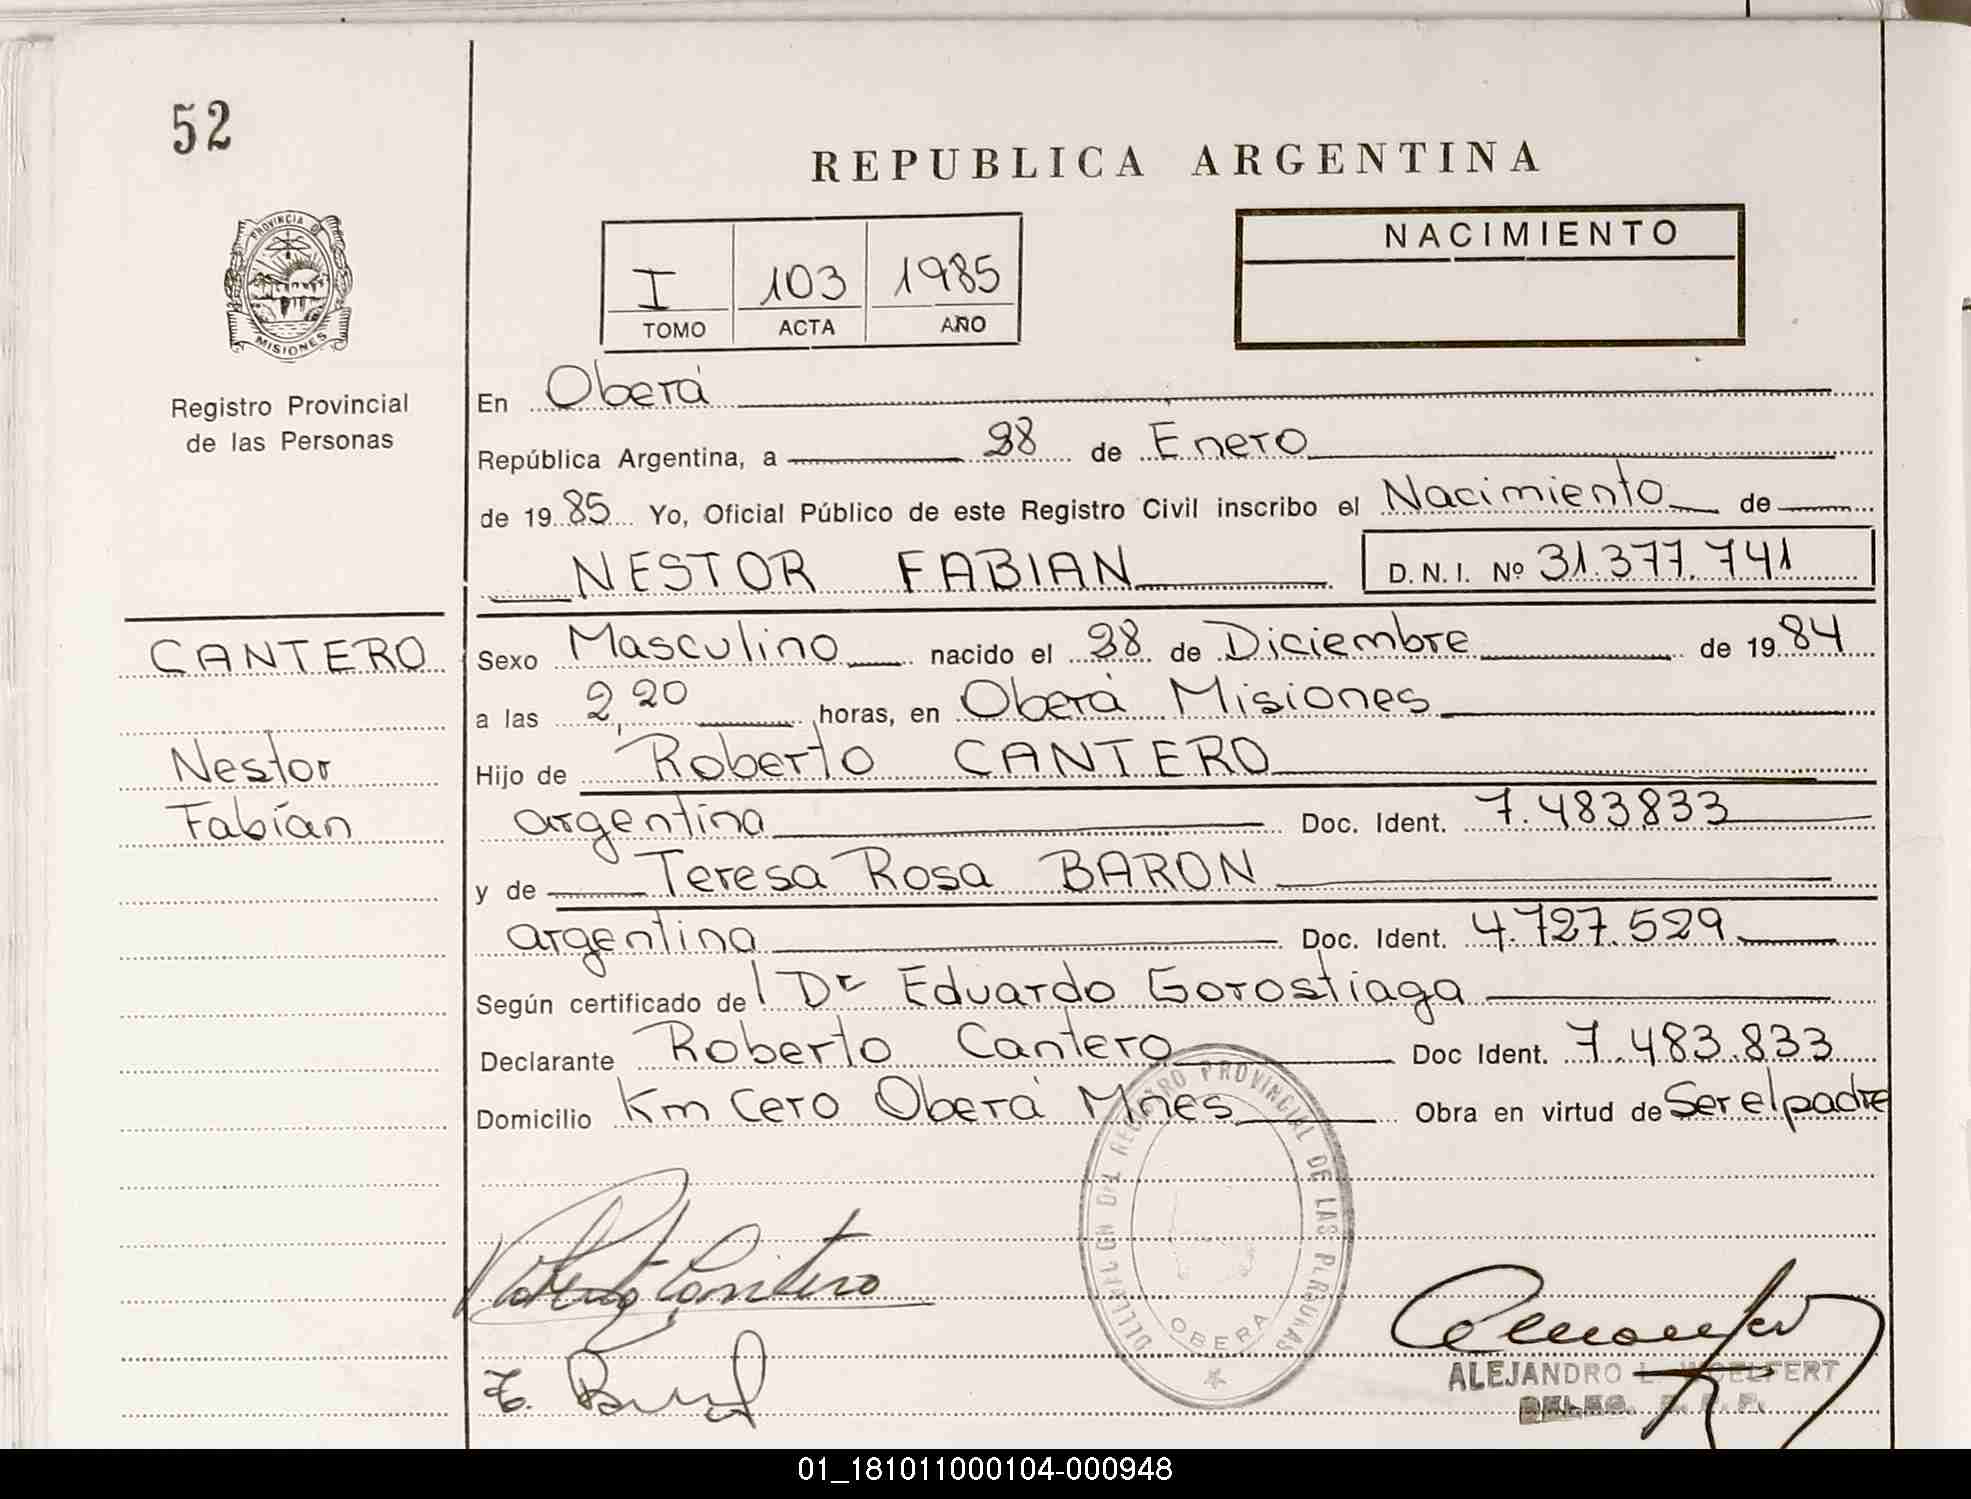 52
REPUBLICA ARGENTINA
PROVINCIA DE
MISIONES
Registro Provincial
de las Personas
I 103 1985
TOMO ACTA AÑO
NACIMIENTO
En Oberá
República Argentina, a 28 de Enero
de 1985 Yo, Oficial Público de este Registro Civil inscribo el Nacimiento de
NESTOR FABIAN D.N.I. Nº 31.377.741
CANTERO
Nestor
Fabían
Sexo Masculino nacido el 28 de Diciembre de 1984
a las 2,20 horas, en Oberá Misiones
Hijo de Roberto CANTERO
argentina Doc. Ident. 7.483833
y de Teresa Rosa BARON
argentina Doc. Ident. 4.727.529
Según certificado de Dr Eduardo Gorostiaga
Declarante Roberto Cantero Doc Ident. 7.483.833
Domicilio Km Cero Oberá Mnes Obra en virtud de Ser el padre
DEL REGISTRO PROVINCIAL DE LAS PERSONAS
OBERA
Roberto Cantero
ALEJANDRO L. WOELFERT
DELEG. R. P. P.
01_181011000104-000948